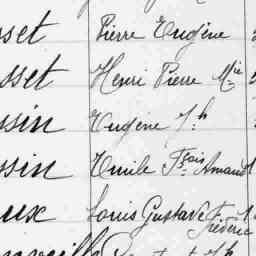 sset Pierre Eugène
sset Henri Pierre Mie
ssin Eugène Jh
ssin Emile Fçois Amand
ux Louis Gustave Frédéric